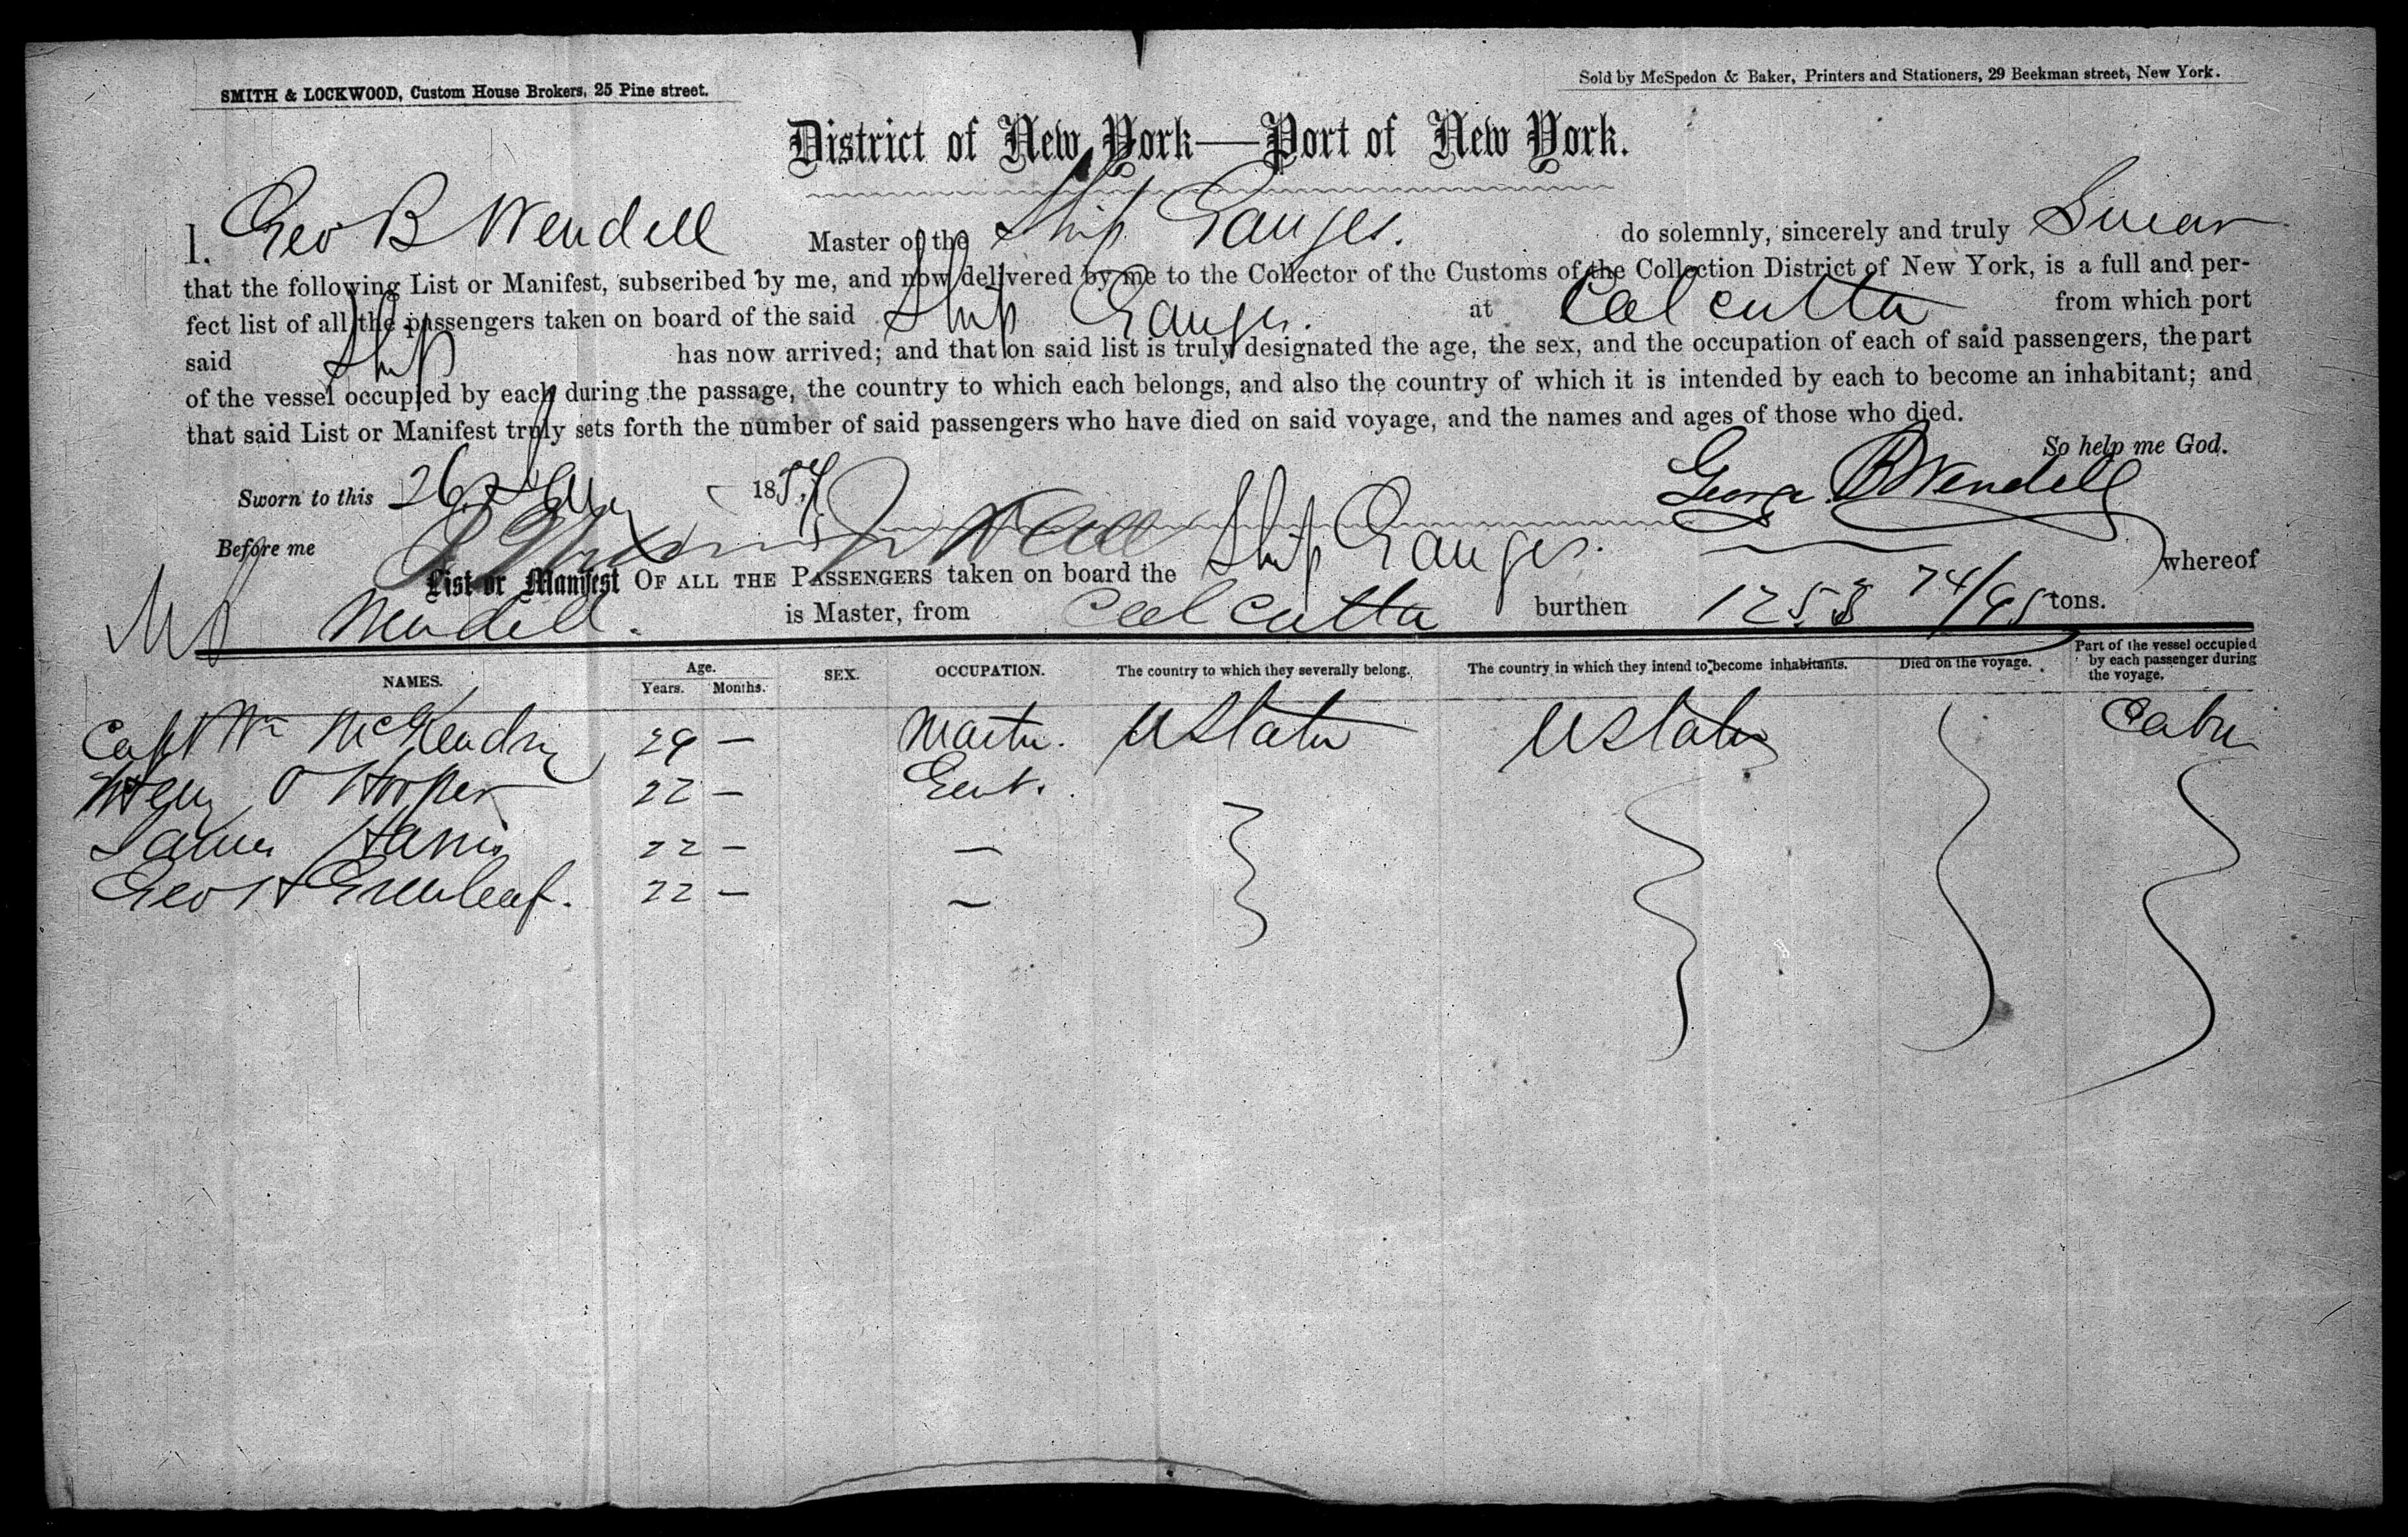 SMITH & LOCKWOOD, Custom House Brokers, 25 Pine street.
Sold by McSpedon & Baker, Printers and Stationers, 29 Beekman street, New York.
District of New York—Port of New York.
I, Geo B Wendell Master of the Ship Ganges. do solemnly, sincerely and truly Swear
that the following List or Manifest, subscribed by me, and now delivered by me to the Collector of the Customs of the Collection District of New York, is a full and per-
fect list of all the passengers taken on board of the said Ship Ganges. at Calcutta from which port
said Ship has now arrived; and that on said list is truly designated the age, the sex, and the occupation of each of said passengers, the part
of the vessel occupied by each during the passage, the country to which each belongs, and also the country of which it is intended by each to become an inhabitant; and
that said List or Manifest truly sets forth the number of said passengers who have died on said voyage, and the names and ages of those who died.
So help me God.
Sworn to this 26 1857 George B Wendell
Before me
List or Manifest OF ALL THE PASSENGERS taken on board the Ship Ganges. whereof
Wendell. is Master, from Calcutta burthen 1258 74/95 tons.
NAMES. Age. Years. Months. SEX. OCCUPATION. The country to which they severally belong. The country in which they intend to become inhabitants. Died on the voyage. Part of the vessel occupied by each passenger during the voyage.
Capt Wm McKendry 29 — Master. U States U States Cabin
Henry O Hooper 22 — Gent.
James Harris 22 — —
Geo H Greenleaf. 22 — —